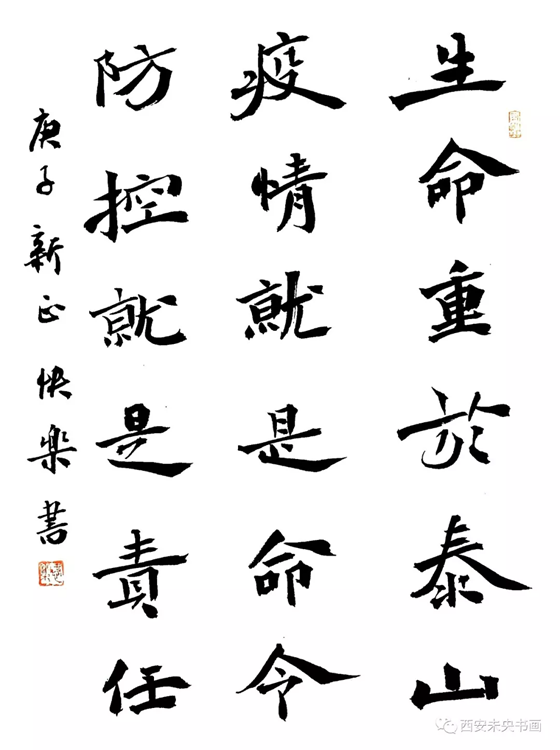 生命重於泰山
疫情就是命令
防控就是責任
庚子新正快樂書
西安未央书画